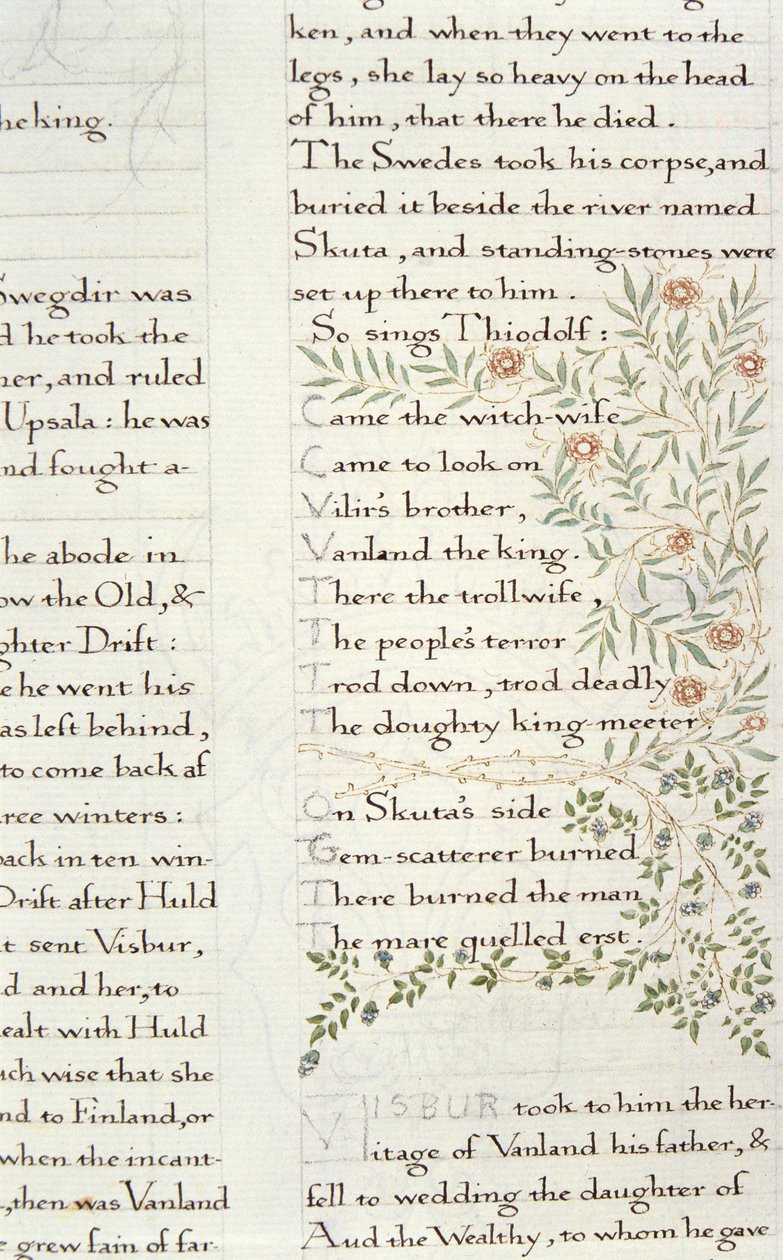 he king.
Swegdir was
d he took the
her, and ruled
Upsala : he was
nd fought a-
he abode in
ow the Old, &
ghter Drift :
e he went his
as left behind,
to come back af
ree winters :
back in ten win-
Drift after Huld
t sent Visbur,
d and her, to
ealt with Huld
uch wise that she
nd to Finland, or
when the incant-
, then was Vanland
e grew fain of far-
ken, and when they went to the
legs, she lay so heavy on the head
of him, that there he died.
The Swedes took his corpse, and
buried it beside the river named
Skuta, and standing-stones were
set up there to him.
So sings Thiodolf :
Came the witch-wife
Came to look on
Vilir's brother,
Vanland the king.
There the trollwife,
The people's terror
Trod down, trod deadly
The doughty king-meeter.
On Skuta's side
Gem-scatterer burned
There burned the man
The mare quelled erst.
VISBUR took to him the her-
itage of Vanland his father, &
fell to wedding the daughter of
Aud the Wealthy, to whom he gave